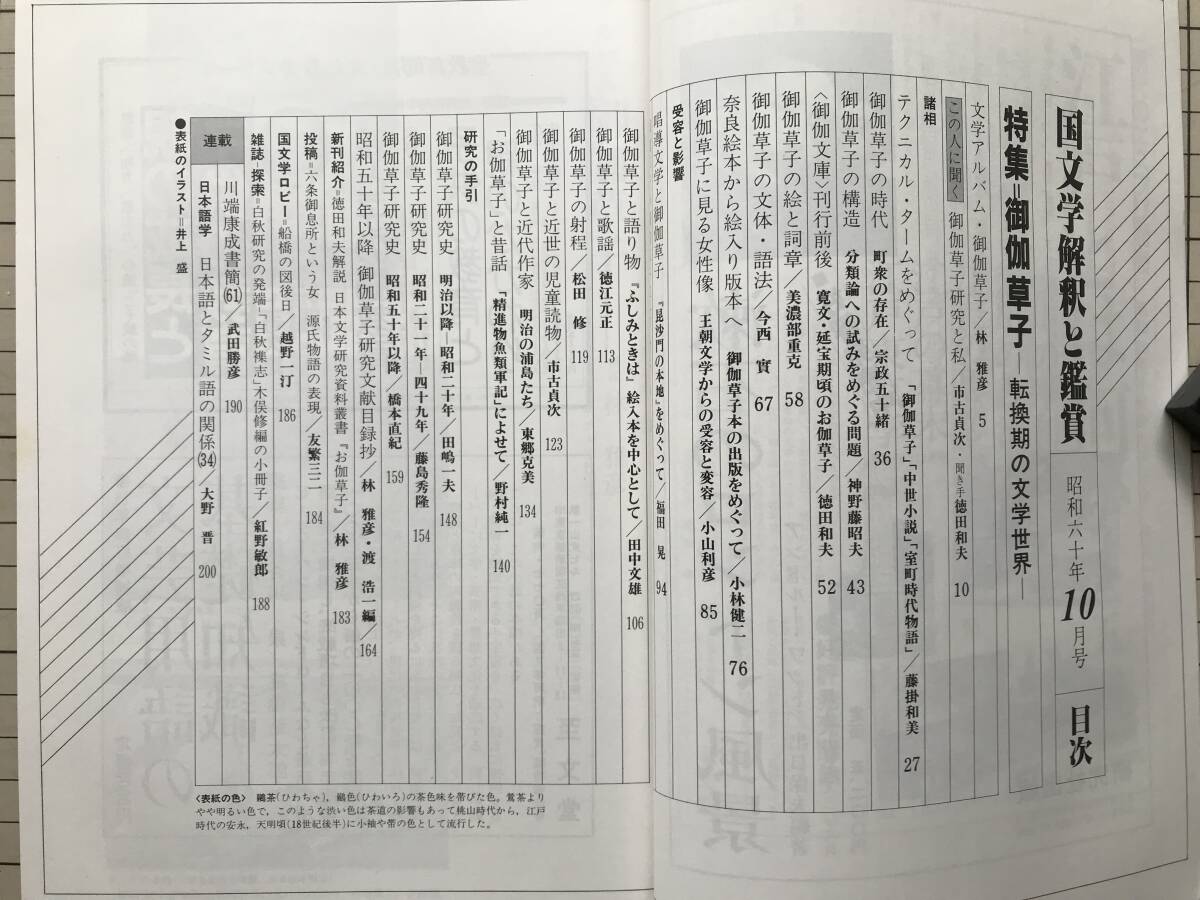 国文学解釈と鑑賞 昭和六十年10月号 目次
特集=御伽草子―転換期の文学世界―
文学アルバム・御伽草子/林 雅彦 5
この人に聞く 御伽草子研究と私/市古貞次・聞き手徳田和夫 10
諸相
テクニカル・タームをめぐって 「御伽草子」「中世小説」「室町時代物語」/藤掛和美 27
御伽草子の時代 町衆の存在/宗政五十緒 36
御伽草子の構造 分類論への試みをめぐる問題/神野藤昭夫 43
〈御伽文庫〉刊行前後 寛文・延宝期頃のお伽草子/徳田和夫 52
御伽草子の絵と詞章/美濃部重克 58
御伽草子の文体・語法/今西 實 67
奈良絵本から絵入り版本へ 御伽草子本の出版をめぐって/小林健二 76
御伽草子に見る女性像 王朝文学からの受容と変容/小山利彦 85
受容と影響
唱導文学と御伽草子 『毘沙門の本地』をめぐって/福田 晃 94
御伽草子と語り物 『ふしみときは』絵入本を中心として/田中文雄 106
御伽草子と歌謡/徳江元正 113
御伽草子の射程/松田 修 119
御伽草子と近世の児童読物/市古貞次 123
御伽草子と近代作家 明治の浦島たち/東郷克美 134
「お伽草子」と昔話 「精進物魚類軍記」によせて/野村純一 140
研究の手引
御伽草子研究史 明治以降―昭和二十年/田嶋一夫 148
御伽草子研究史 昭和二十一年―四十九年/藤島秀隆 154
御伽草子研究史 昭和五十年以降/橋本直紀 159
昭和五十年以降 御伽草子研究文献目録抄/林 雅彦・渡 浩一編/164
新刊紹介=徳田和夫解説 日本文学研究資料叢書『お伽草子』/林 雅彦 183
投稿=六条御息所という女 源氏物語の表現/友繁三二 184
国文学ロビー=船橋の図後日/越野一汀 186
雑誌―探索=白秋研究の発端―「白秋襍志」木俣修編の小冊子/紅野敏郎 188
連載
川端康成書簡(61)/武田勝彦 190
日本語学 日本語とタミル語の関係(34)/大野 晋 200
●表紙のイラスト=井上 盛
〈表紙の色〉 鶸茶(ひわちゃ),鶸色(ひわいろ)の茶色味を帯びた色。鶯茶より
やや明るい色で,このような渋い色は茶道の影響もあって桃山時代から,江戸
時代の安永,天明頃(18世紀後半)に小袖や帯の色として流行した。